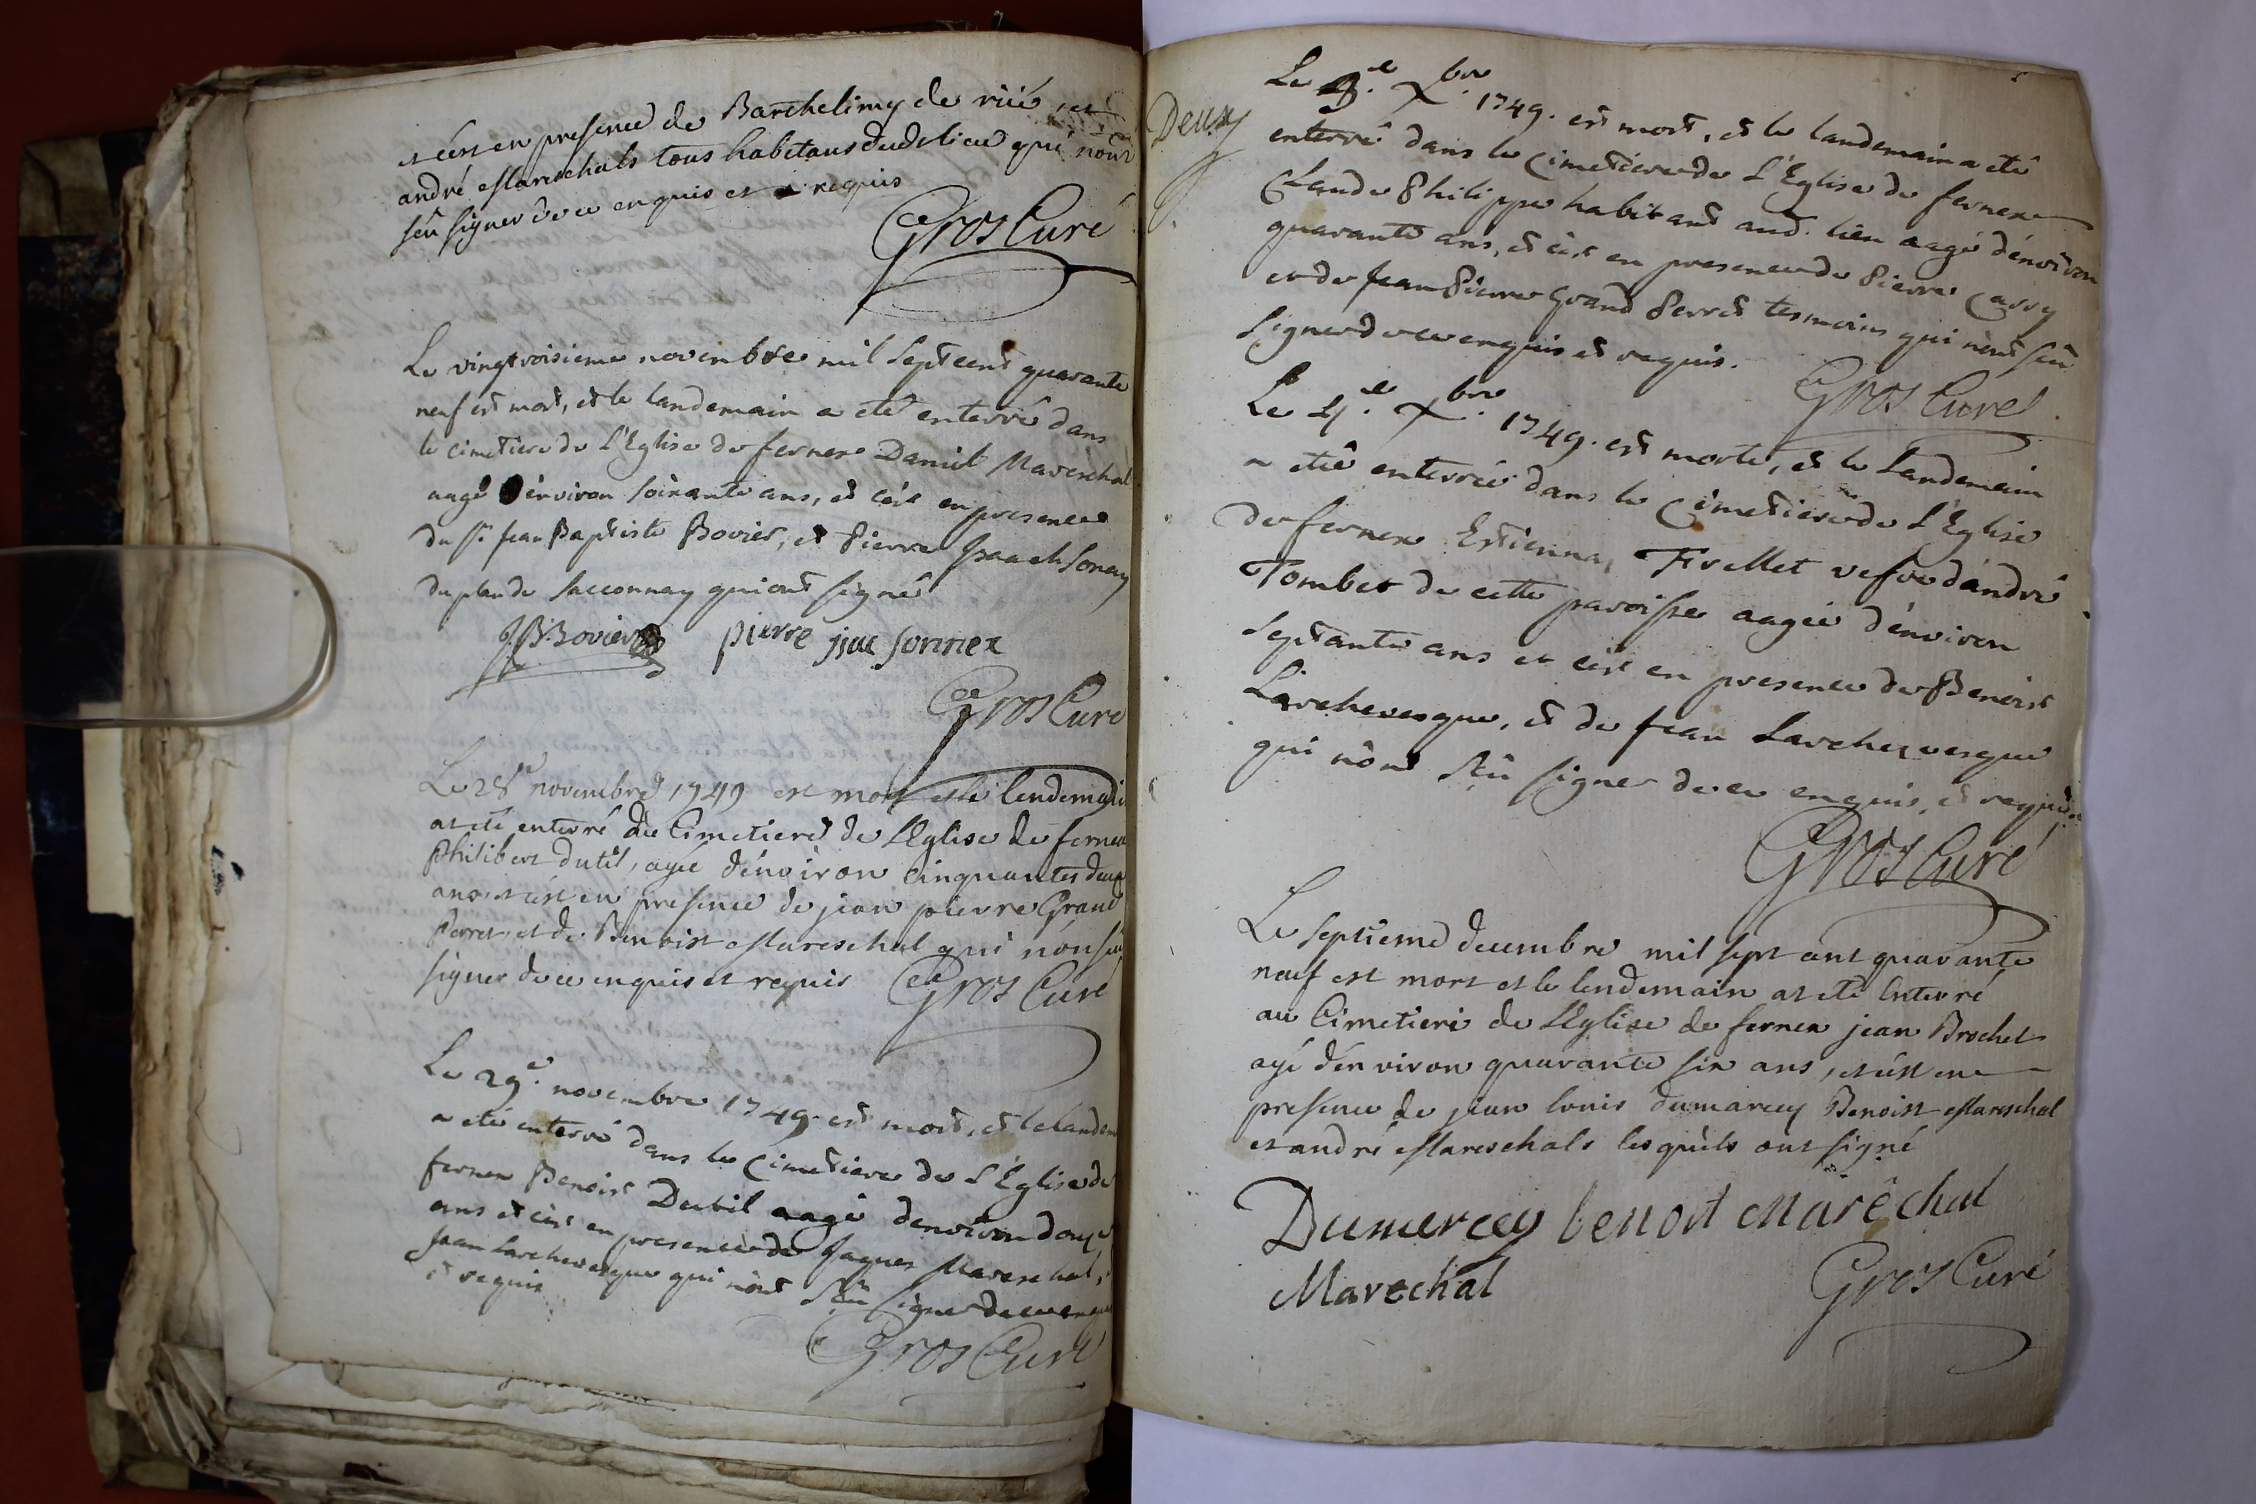 et c'est en presence de Barthelimy de riié, et
andré Mareschals tous habitans dudt lieu qui nont
sçu signer de ce enquis et requis
Gros Curé
Le vingtroisieme novembre mil sept cent quarante
neuf est mort, et le landemain a eté enterré dans
le cimetiere de L'Eglise de fernex Daniel Mareschal
aagé d'environ soixante ans, et c'est en presence
du Sr Jean Baptiste Bovier, et Pierre Isaach Sonay
du plan de Sacconnay qui ont signé
J.B. Bovier pierre jsac sonnex
Gros Curé
Le 28e novembre 1749 est mort et le lendemain
at eté enterré au Cimetiere de L'Eglise de fernex
Philibert dutil, agé d'environ cinquantes deux
ans et c'est en presence de jean pierre Grand
Perret et de Benoist Mareschal qui n'ont sçu
signer de ce enquis et requis Gros Curé
Le 29e novembre 1749. est mort, et le landem
a eté enterré dans le Cimetiere de L'Eglise de
fernex Benoist Dutil aagé d'environ douze
ans et c'est en presence de Jaques Mareschal,
Jean Larchevesque qui n'ont sçu signer de ce enquis
et requis
Gros Curé
Deux
Le 3.e Xbre. 1749. est mort, et le landemain a eté
enterré dans le Cimetiere de L'Eglise de fernex
Claude Philippe habitant aud. lieu aagé d'environ
quarante ans, et c'est en presence de Pierre Carry
et de Jean Pierre Grand Perret tesmoins qui n'ont sçu
signer de ce enquis et requis.
Gros Curé
Le 4.e Xbre. 1749. est morte, et le Landemain
a eté enterrée dans le Cimetiere de L'Eglise
de fernex Estienna Firellet vefve d'andré
Tombet de cette paroisse aagée d'environ
septante ans et c'est en presence de Benoist
Larchevesque, et de Jean Larchevesque
qui n'ont sçu signer de ce enquis, et requis.
Gros Curé
Le septieme decembre mil sept cent quarante
neuf est mort et le lendemain at eté Enterré
au Cimetiere de L'Eglise de fernex jean Brochet
agé d'environ quarante six ans, et c'est en
presence de jean louis dumarcey Benoist Mareschal
et andré Mareschals lesquels ont signé
Dumercey benoit Marêchal
Marechal
Gros Curé